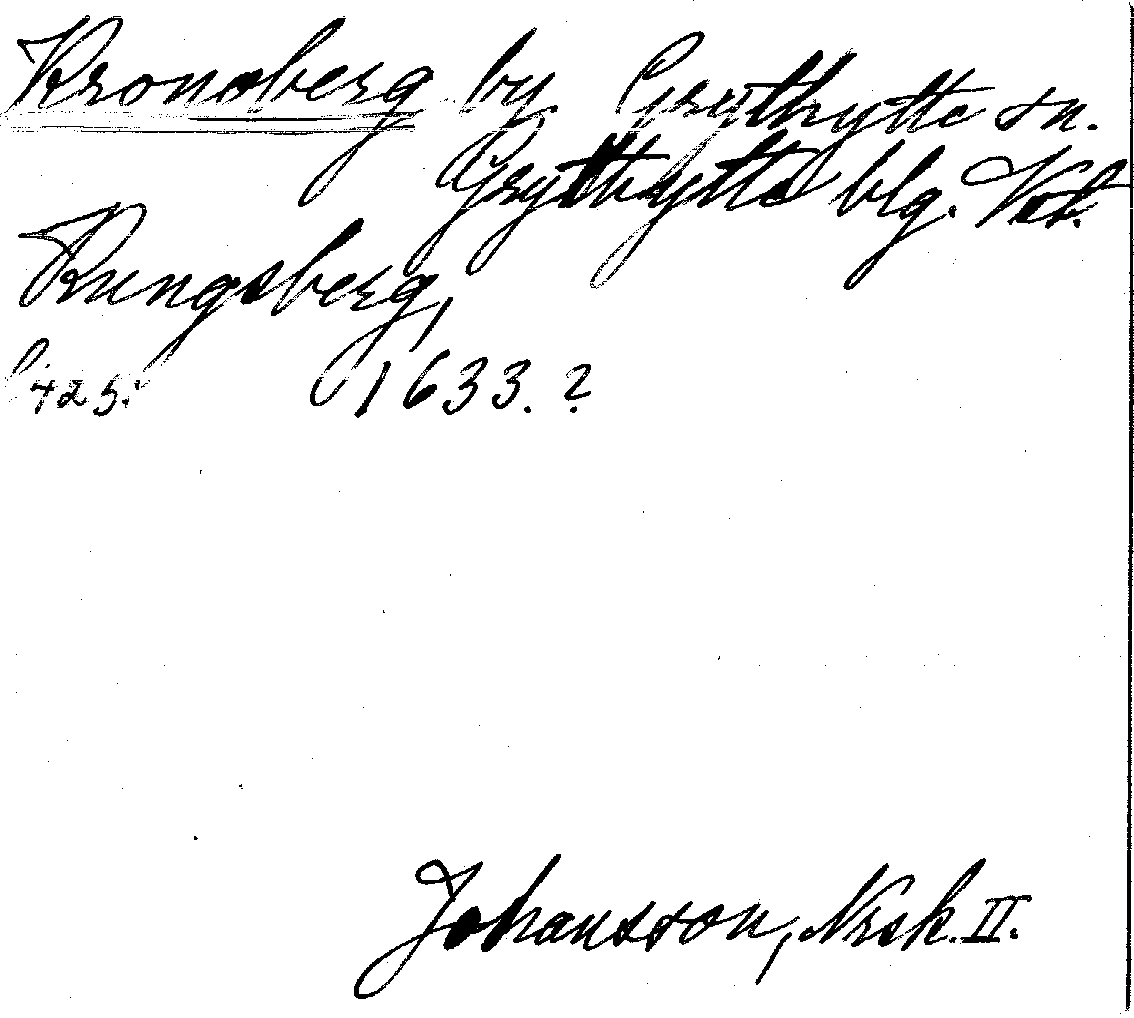 Kronoberg by Grythytte sn.
Grythytte blg. Vstm.
Kungsberg,
425. 1633. ?
Johansson, Nrsk. II.